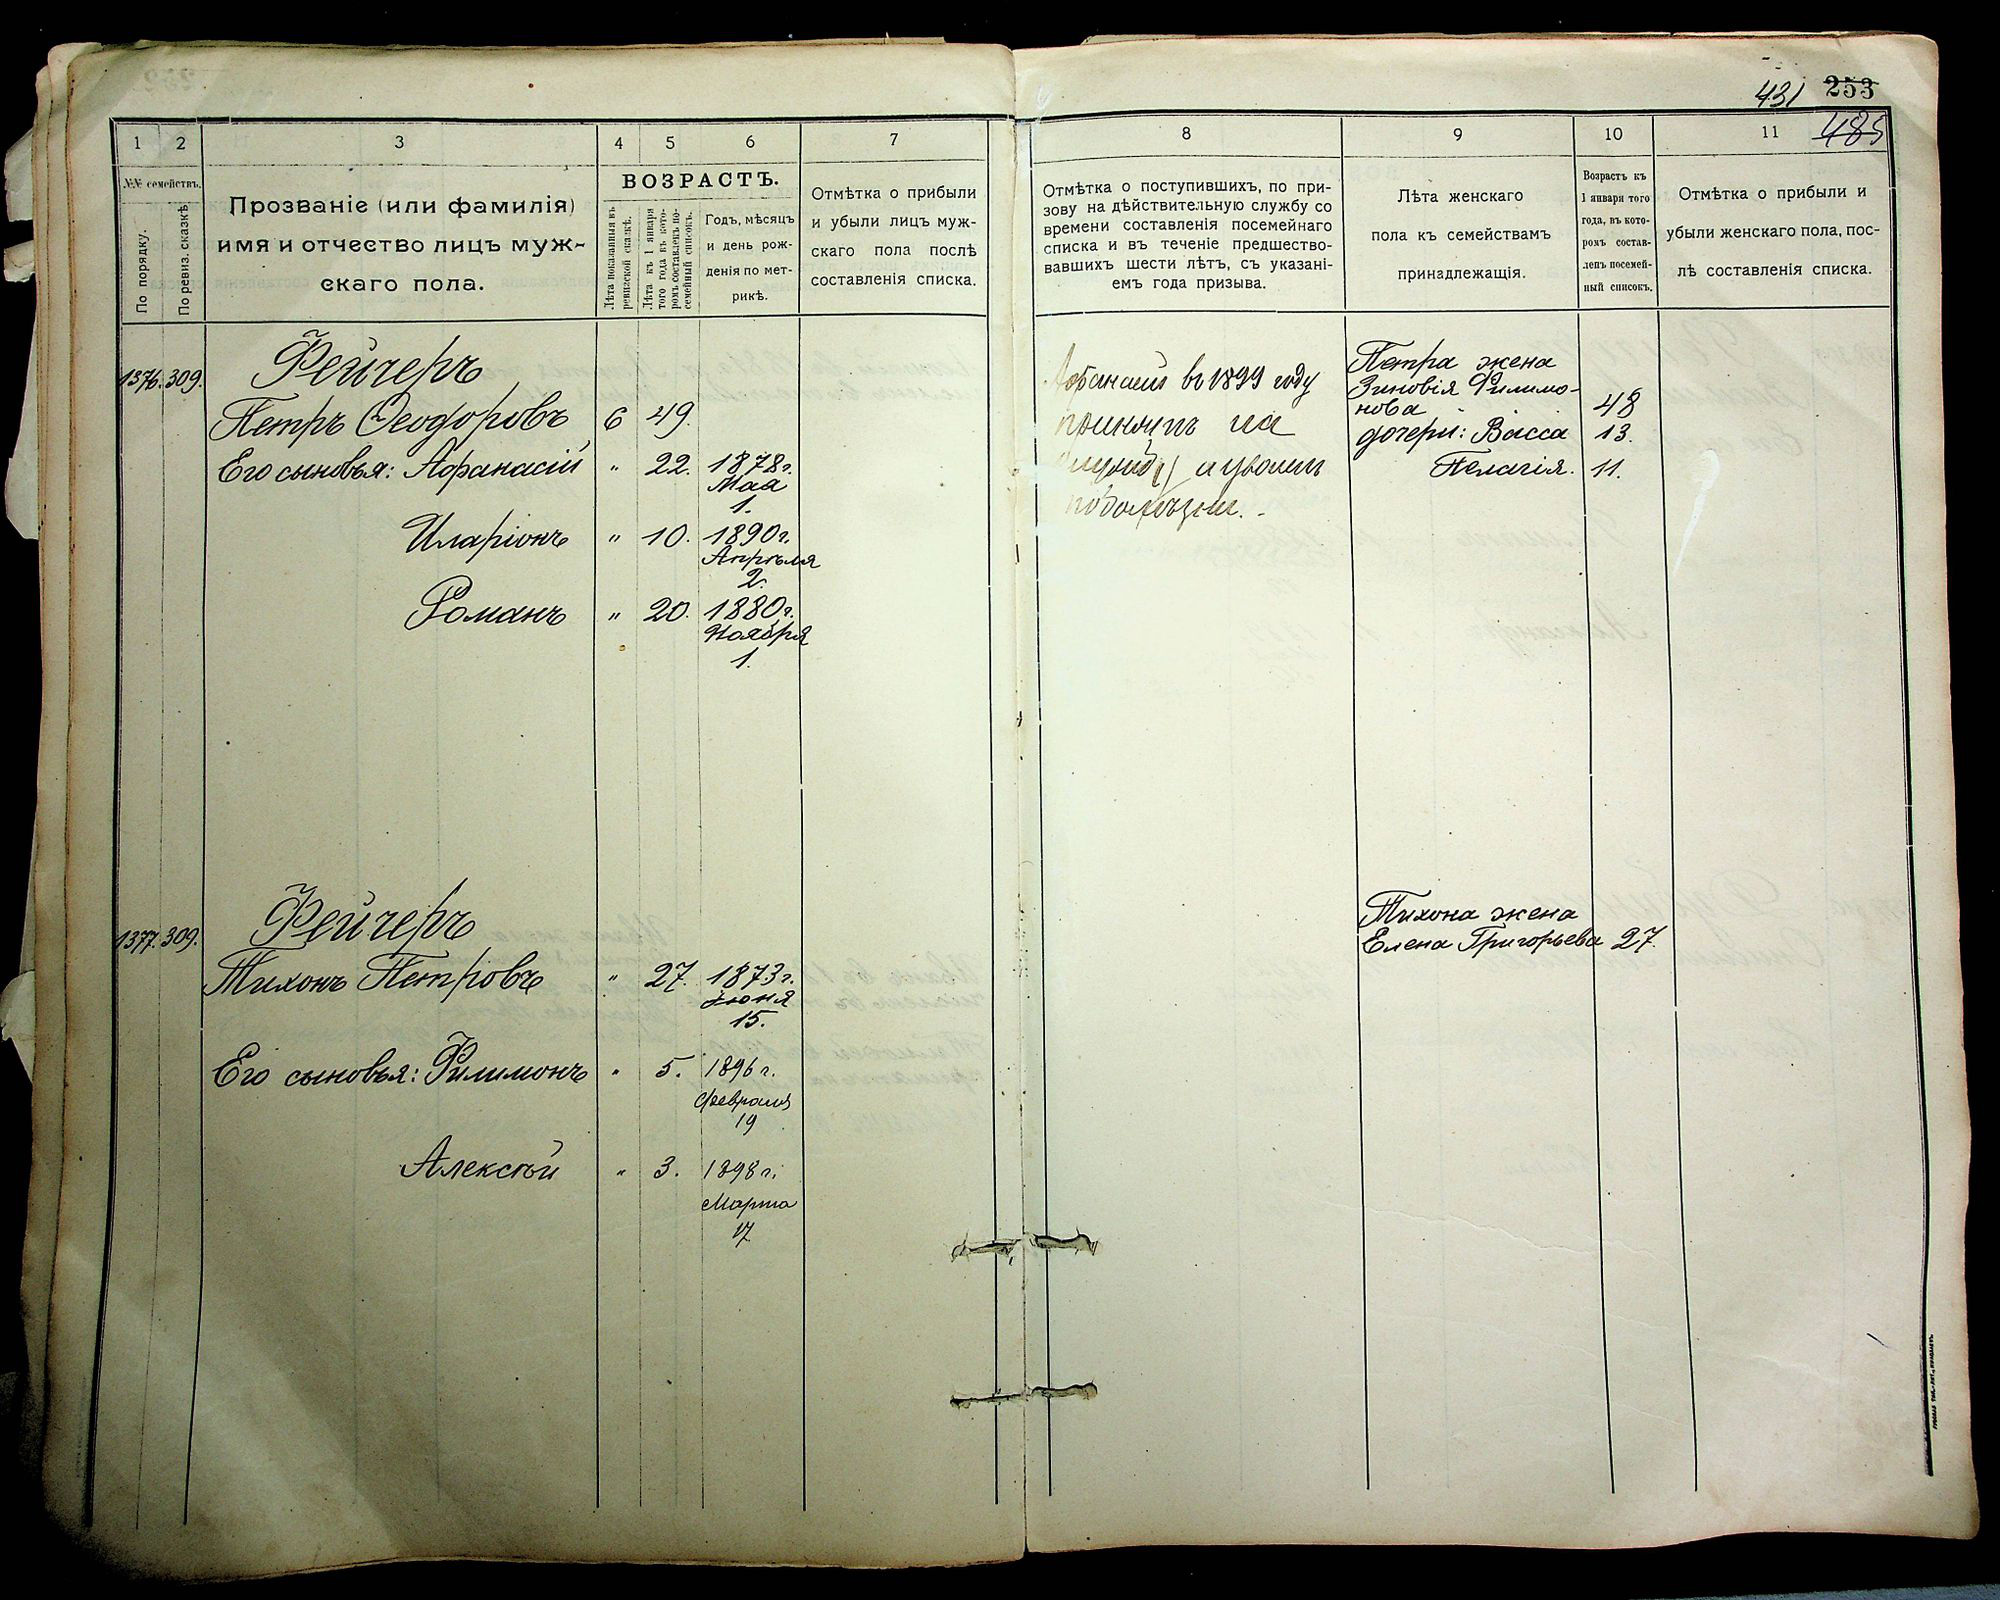 431 253
485
1 2 3 4 5 6 7
№№ семействъ.
По порядку.
По ревиз. сказкѣ
Прозваніе (или фамилія)
имя и отчество лицъ муж-
скаго пола.
ВОЗРАСТЪ.
Лѣта показанныя въ
ревизской сказкѣ.
Лѣта къ 1 января
того года въ кото-
ромъ составленъ по-
семейный списокъ.
Годъ, мѣсяцъ
и день рож-
денія по мет-
рикѣ.
Отмѣтка о прибыли
и убыли лицъ муж-
скаго пола послѣ
составленія списка.
1376. 309. Фейчеръ
Петръ Ѳеодоровъ 6 49.
Его сыновья: Афанасій " 22. 1878 г.
Мая
1.
Иларіонъ " 10. 1890 г.
Апрѣля
2.
Романъ " 20. 1880 г.
Ноября
1.
1377. 309. Фейчеръ
Тихонъ Петровъ " 27. 1873 г.
Іюня
15.
Его сыновья: Филимонъ " 5. 1896 г.
Февраля
19
Алексѣй " 3. 1898 г.
Марта
17
8 9 10 11
Отмѣтка о поступившихъ, по при-
зову на дѣйствительную службу со
времени составленія посемейнаго
списка и въ теченіе предшество-
вавшихъ шести лѣтъ, съ указані-
емъ года призыва.
Лѣта женскаго
пола къ семействамъ
принадлежащія.
Возрастъ къ
1 января того
года, въ кото-
ромъ состав-
ленъ посемей-
ный списокъ.
Отмѣтка о прибыли и
убыли женскаго пола, пос-
лѣ составленія списка.
Афанасій въ 1899 году
принятъ на
службу и уволенъ
по болѣзни.
Петра жена
Зиновія Филимо-
нова 48
дочери: Васса 13.
Пелагія. 11.
Тихона жена
Елена Григорьева 27.